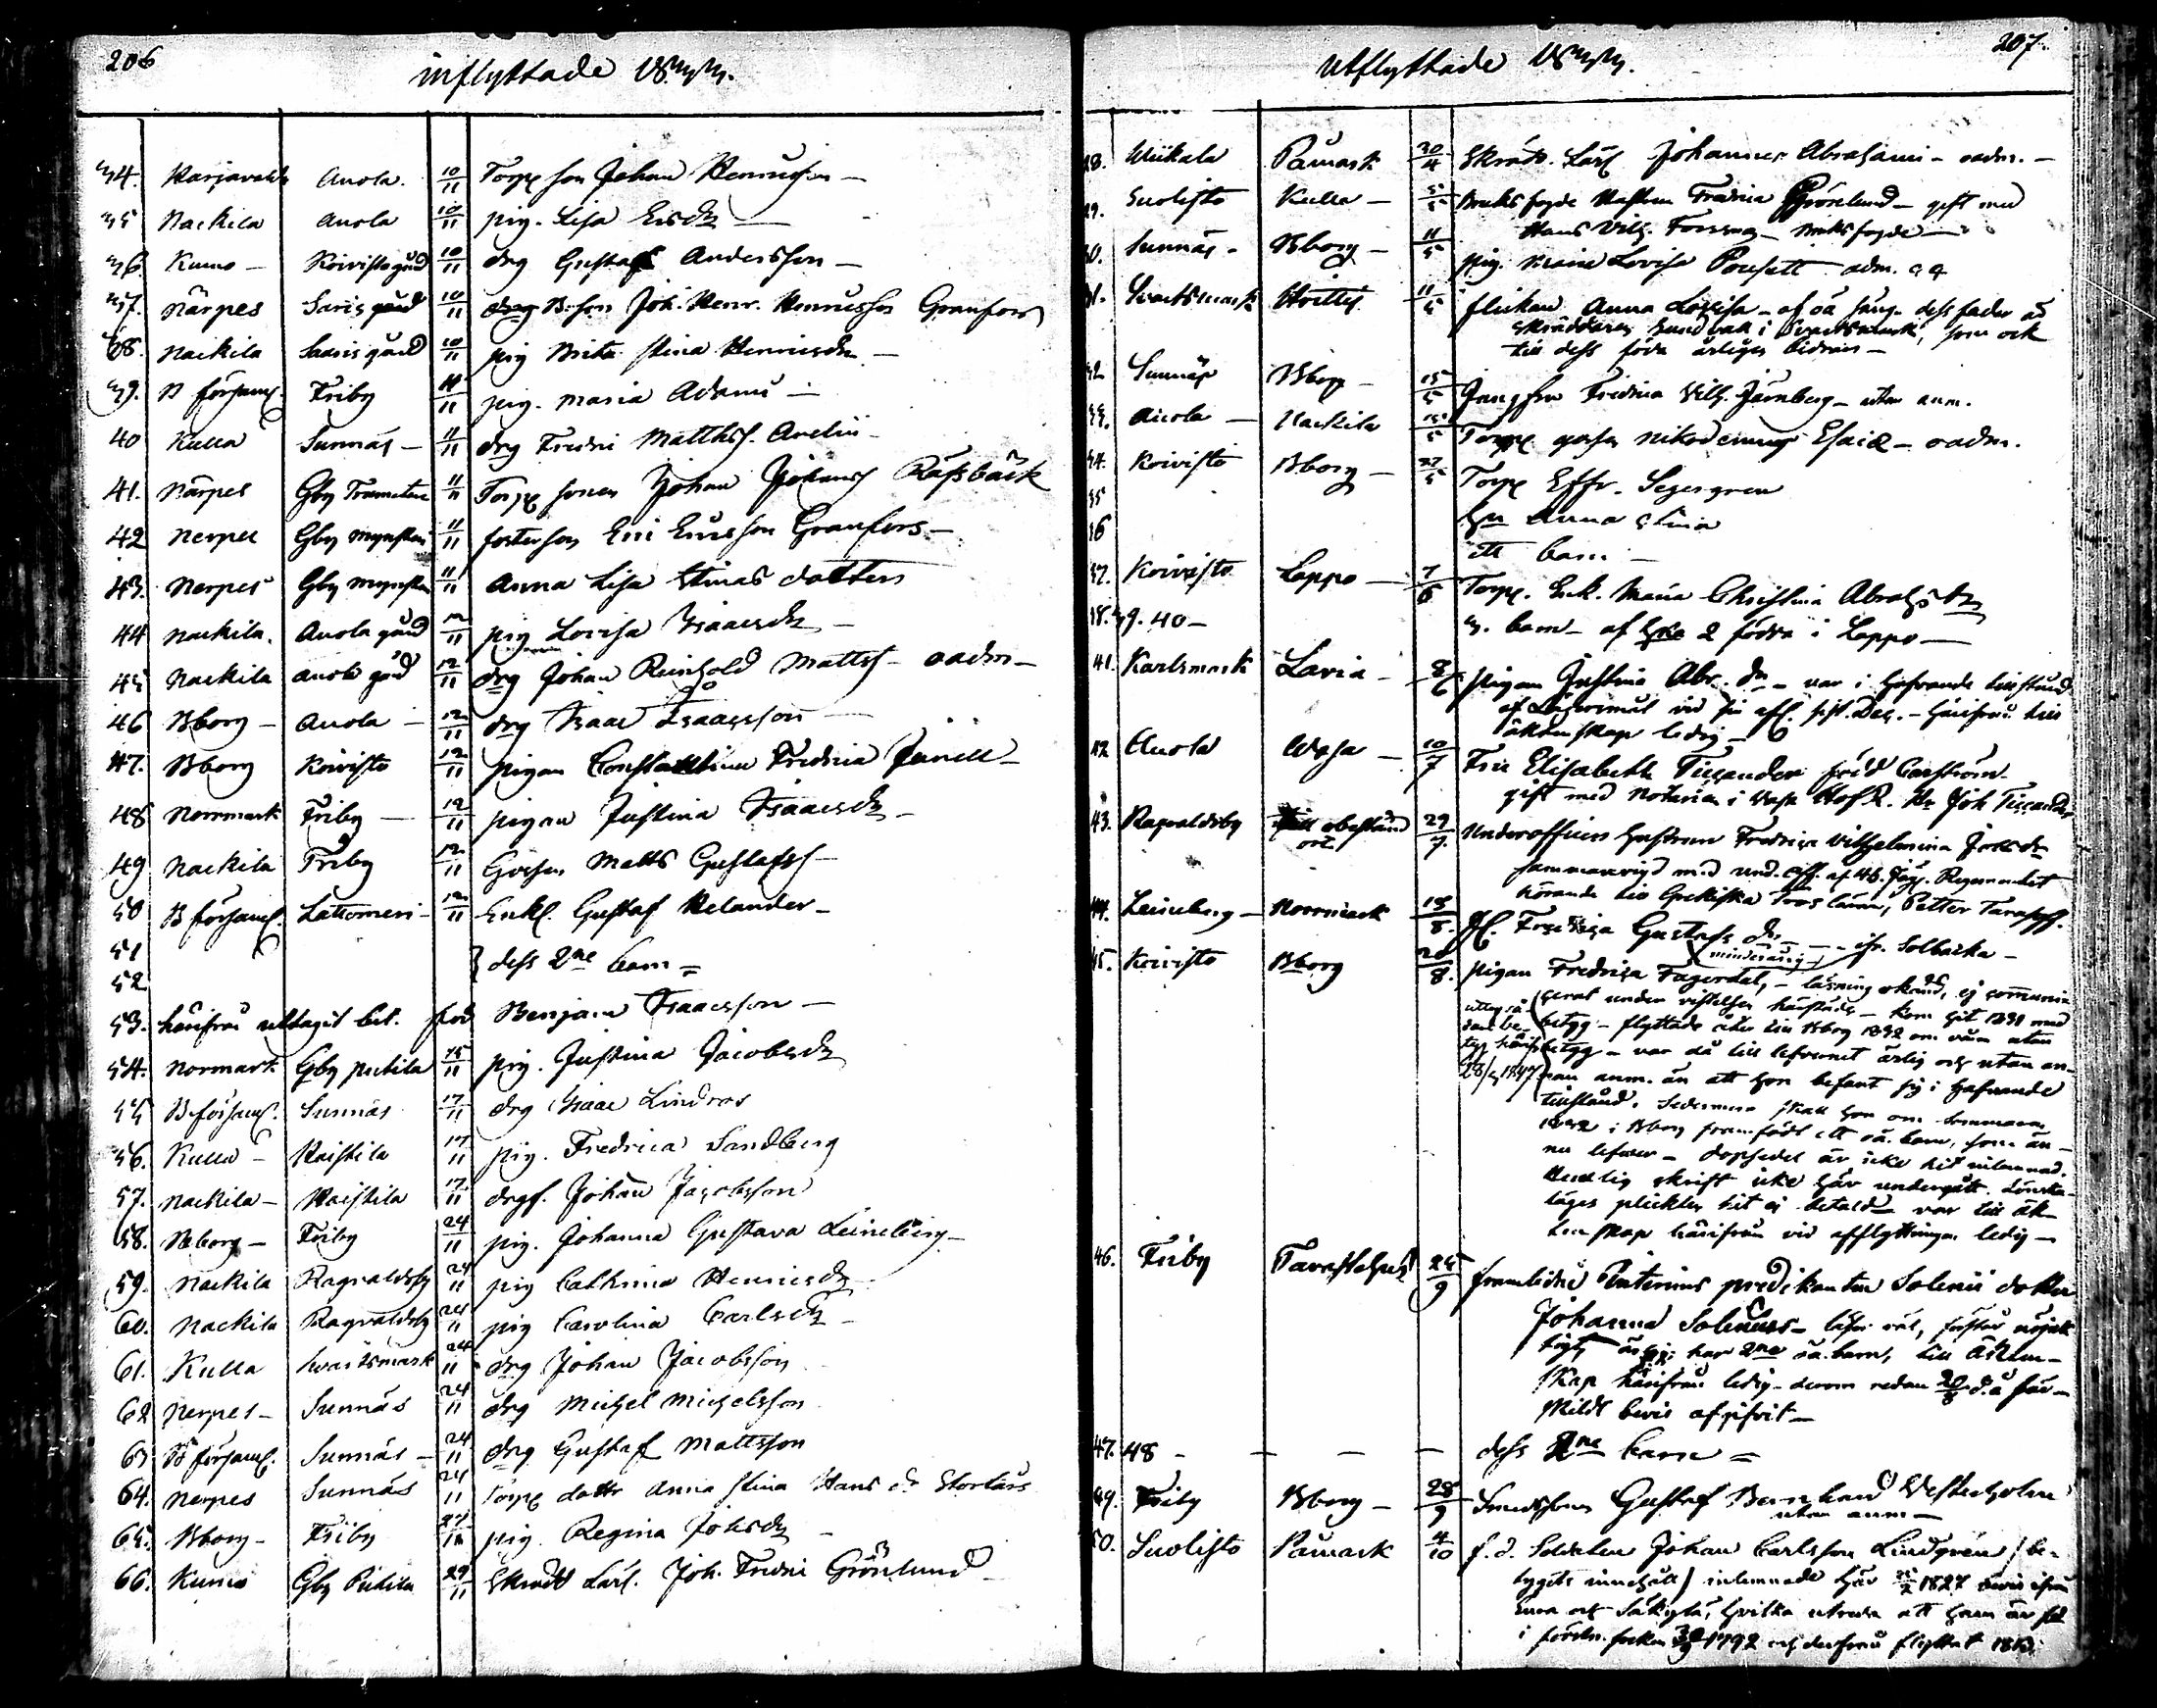 206
inflyttade 1833.
34. Harjavalda Anola. 10/11 Torp son Johan Henricsson —
35 Nackila Anola 10/11 pig. Lisa Ersdr —
36. Kumo — Koivistogård 10/11 drg Gustaf Andersson —
37. Närpes Saris gård 10/11 B. son Joh. Henr. Henricsson Granfors
38. Nackila Saaris gård 10/11 pig Brita Stina Henricsdr —
39. B församl. Friby 11/11 pig. Maria Adami —
40 Kulla Sunnäs — 11/11 drg Fredric Matthss. Avelin
41. Närpes Gby Trumeten 11/11 Torp sonen Johan Johanss Råssbäck
42 Nerpes Gby mynsteri 11/11 fosterson Eric Ericsson Granfors —
43. Nerpes Gby mynsteri 11/11 Anna Lisa Stinas dotter
44 Nackila. Anola gård 12/11 pig Lovisa Isaacsdr —
45 Nackila Anola gård 12/11 drg Johan Reinhold Mattss — oadm —
46 Bborg — Anola — 12/11 drg Isaac Isaacsson —
47. Bborg Koivisto 12/11 pigan Constantina Fredrica Junell —
48 Norrmark Friby — 12/11 pigan Justina Isaacsdr —
49 Nackila Friby 12/11 Gossen Matts Gustafss —
50 B församl. Lattomeri — 12/11 Enkl. Gustaf Melander —
51 } dess 2ne barn =
52
53. härifrån uttagit bet. Benjam Isaacsson —
54. Normark Gby puckila 15/11 pig. Justina Jacobsdr
55 B församl. Sunnäs 17/11 drg Isaac Lindroos
56. Kulla — Haistila 17/11 pig. Fredrica Sandberg
57. Nackila — Haistila 17/11 drgs. Johan Jacobsson
58. Bborg — Friby 24/11 pig. Johanna Gustava Leineberg —
59. Nackila Ragvaldsby 24/11 pig Cathrina Henricsdr
60. Nackila Ragvaldsby 24/11 pig Carolina Carlsdr
61. Kulla Svartsmark 24/11 drg Johan Jacobsson
62 Nerpes — Sunnäs 24/11 drg Michel Michelsson
63 B församl. Sunnäs — 24/11 drg Gustaf Mattsson
64. Nerpes Sunnäs 24/11 Torp dottr Anna Stina Hans dr Storlårs
65. Bborg — Friby 27/11 pig. Regina Johsdr —
66. Kumo Gby Puckila 29/11 Skrädd Lärl. Joh. Fredric Grönlund —
207.
utflyttade 1833.
28. Wiikala Påmark 30/4 Skrädd. Lärl Johannes Abrahami — oadm. —
29. Suolisto Kulla — 5/5 Bruksfogde Hustrun Fredrica Grönlund — gift med
Hans Vilh. Forssman — Bruksfogde —
30. Sunnäs — Bborg — 11/5 pig. Maria Lovisa Pousett adm.
31. Svartsmark Hvittis 11/5 flickan Anna Lovisa — af oä säng. dess fader är
skräddaren i Svartsmark, som ock
till dess föda årligen bidrar —
32 Sunnäs Bborg — 15/5 Jungfru Fredrica Vilh. Järnberg — utan anm.
33. Anola — Nackila 15/5 Torp gossen Nikodemus Esaiæ — oadm.
34. Koivisto Bborg — 27/5 Torp Effr. Segergren
35 hu Anna Stina
36 ett barn —
37. Koivisto Lappo — 7/6 Torp. Enk. Maria Christina Abrahsdr
38. 39. 40 — 3. barn — af hvilka 2 födda i Lappo —
41. Karlsmark Lavia — 8/6 pigan Justina Abr. dr — var i hafvande tillstånd
af Lägersmål vid sin afl. sist. Dec. — härifrån till
äktenskap ledig —
42 Anola Wasa — 10/7 Fru Elisabeth Tillander född Carström
gift med Notarien i Wasa HofR. Hr Joh Tillander
43. Ragvaldsby till obestämd ort 29/7. Underofficers hustrun Fredrica Vilhelmina Johsdr
sammanvigd med und. off. af 46. Jäg. Regementet
hörande till Grekiska Tros läran, Petter Tarasoff.
44. Leineberg — Norrmark 18/8. Fl. Fredrica Gustafs dr — (minderårig) — ifr. Solbacka —
45. Koivisto Bborg 20/8. pigan Fredrica Fagerdal, — läsning okänd, ej communi-
cerat under vistelsen härstädes — kom hit 1831 med
betyg — flyttade åter till Bborg 1832 om våren utan
betyg — var då till lefvernet ärlig och utan an-
nan anm. än att hon befant sig i hafvande
tillstånd. Sedermera skall hon om sommaren
1832 i Bborg framfödt ett oä. barn, som än-
nu lefver — dopsedel är icke hit inlemnad.
Uendlig skrift icke här undergått. Löneta-
lages plickten hit ej betald — var till äk-
tenskap härifrån vid afflyttningen ledig —
46. Friby Tavastehus 25/9 framlidne Interims predikanten Solenii dotter
Johanna Solenius — läser väl, förstår nöjak-
tigt, har 2ne oä. barn, till äkten-
skap härifrån ledig — derom redan d.å sär-
skildt bevis afgifvit —
47. 48 — — — — dess 2ne barn =
49. Friby Bborg — 28/9 Smedssonen Gustaf Bernhard Westerholm
utan anm —
50. Suolisto Påmark 4/10 f. d. Soldaten Johan Carlsson Lindgren / be-
tygets innehåll / inlemnade här 1827 bevis ifrån
Eura och Säkylä, hvilka utreda att han är född
i förstn. socken 1792 och derifrån flyttat 1813.